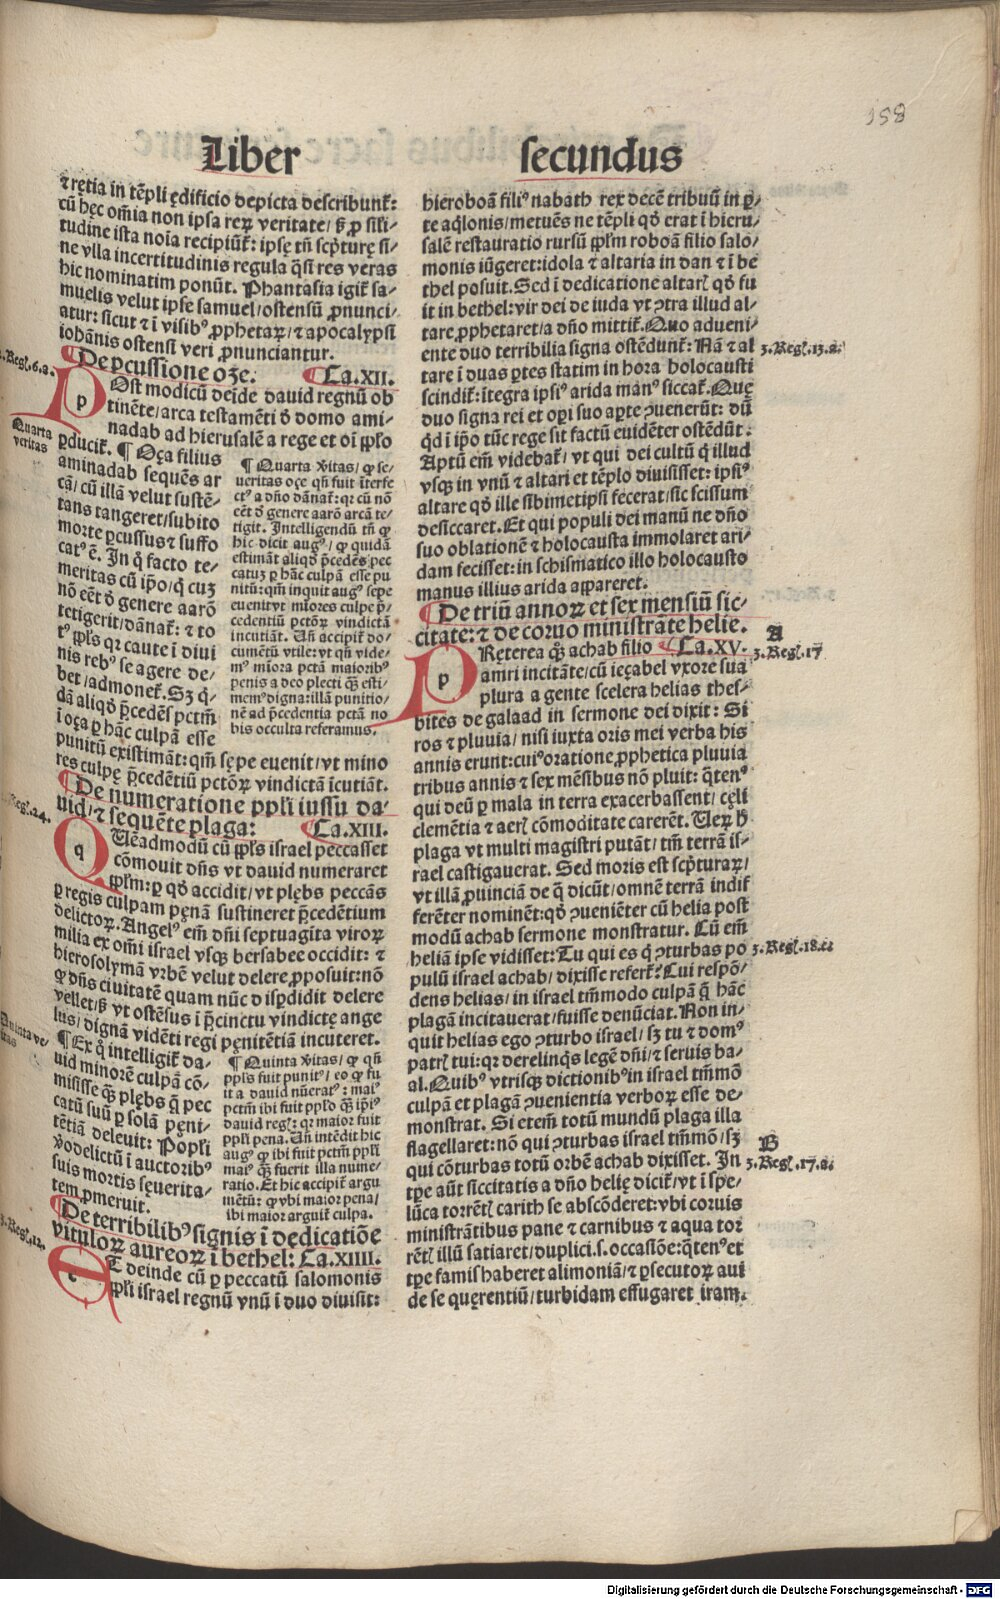 158
Liber secundus
⁊ rętia in tēpli ędificio depicta describunt᷑:
cū hęc om̄ia non ipsa reꝝ veritate/ ꝫ ꝓ sili-
tudine ista noīa recipiūt᷑: ipsę tn̄ scp̄turę si-
ne vlla incertitudinis regula q̄si res veras
hic nominatim ponūt. Phantasia igit᷑ sa-
muelis velut ipse samuel/ ostensū ꝓnunci-
atur: sicut ⁊ i visibꝰ ꝓphetaꝝ/ ⁊ apocalypsi
iohānis ostensi veri ꝓnunciantur.
¶ De ꝑcussione oze. ¶ Ca.XII.
2.Reg.6.a.
p
Ost modicū deīde dauid regnū ob
tinēte/ arca testamēti ð domo ami-
nadab ad hierusalē a rege et oī pp̄lo
ꝑducit᷑. ¶ Oça filius
Quarta
veritas
aminadab sequēs ar
cā/ cū illā velut sustē-
tans tangeret/ subito
morte ꝑcussus ⁊ suffo
catꝰ ē. In q̄ facto te-
meritas cū ip̄o/ q̄ cuꝫ
nō eēt ð genere aarō
tetigerit/ dānat᷑: ⁊ to
tꝰ pp̄ls qꝛ caute i diui
nis rebꝰ se agere de-
bet/ admonet᷑. Sꝫ q̄-
dā aliqð p̄cedēs pctm̄
i oça ꝑ hāc culpā esse
punitū existimāt: qm̄ sępe euenit/ vt mino
res culpę p̄cedētiū pctōꝝ vindictā īcutiāt.
¶ Quarta v̄itas/ ꝙ se-
ueritas oçe qn̄ fuit īterfe
ctꝰ a dn̄o dānat᷑: qꝛ cū nō
eēt ð genere aarō arcā te-
tigit. Intelligendū tn̄ ꝙ
hic dicit augꝰ/ ꝙ quidā
estimāt aliqð p̄cedēs pec
catuꝫ ꝑ hāc culpā esse pu
nitū: qm̄ inquit augꝰ sepe
euenit vt mīores culpe p̄-
cedentiū pctōꝝ vindictā
incutiāt. Un̄ accipit᷑ do-
cumētū vtile: vt qn̄ vide-
mꝰ mīora pctā maioribꝰ
penis a deo plecti q̄ꝫ esti-
memꝰ digna: illā punitio-
nē ad p̄cedentia pctā no
bis occulta referamus.
¶ De numeratione ppl̄i iussu da-
uid/ ⁊ sequēte plaga: ¶ Ca.XIII.
2.Reg.24.
q
Uēadmodū cū pp̄ls israel peccasset
cōmouit dn̄s vt dauid numeraret
pp̄lm: ꝑ qð accidit/ vt plębs peccās
ꝑ regis culpam pęnā sustineret p̄cedētium
delictoꝝ. Angelꝰ em̄ dn̄i septuagīta viroꝝ
milia ex om̄i israel vsqꝫ bersabee occidit: ⁊
hierosolymā vrbē velut delere ꝓposuit: nō
ꝙ dn̄s ciuitatē quam nūc dispdidit delere
vellet/ ꝫ vt ostēsus i p̄cinctu vindictę ange
lus/ dignā vidēti regi pęnitētiā incuteret.
Quinta ve-
ritas
¶ Ex q̄ intelligit᷑ da-
uid minorē culpā cō-
misisse q̄ꝫ plębs q̄ pec
catū suū ꝑ solā pęni-
tētiā deleuit: Pop̄li
v̄o delictū i auctoribꝰ
suis mortis sęuerita-
tem ꝓmeruit.
¶ Quinta v̄itas/ ꝙ qn̄
ppl̄s fuit punitꝰ/ eo ꝙ fu
it a dauid nūeratꝰ: maiꝰ
pctm̄ ibi fuit ppl̄o q̄ꝫ ip̄iꝰ
dauid reg̃: qꝛ maior fuit
ppl̄i pena. Un̄ intēdit hic
augꝰ ꝙ ibi fuit pctm̄ ppl̄i
maiꝰ q̄ꝫ fuerit illa nume-
ratio. Et hic accipit᷑ argu
mētū: ꝙ vbi maior pena/
ibi maior arguit᷑ culpa.
¶ De terribilibꝰ signis i dedicatiōe
vituloꝝ aureoꝝ i bethel: Ca.XIIII.
3.Reg.12.
e
T deinde cū ꝑ peccatū salomonis
pp̄li israel regnū vnū i duo diuisit:
hieroboā filiꝰ nabath rex decē tribuū in ꝑ-
te aq̄lonis/ metuēs ne tēpli qð erat i hieru-
salē restauratio rursū pp̄lm roboā filio salo-
monis iūgeret: idola ⁊ altaria in dan ⁊ i be
thel posuit. Sed i dedicatione altar̃ qð fu
it in bethel: vir dei de iuda vt ꝯtra illud al-
tare ꝓphetaret/ a dn̄o mittit᷑. Quo adueni-
ente duo terribilia signa ostēdunt᷑: Nā ⁊ al
3.Reg.13.a.
tare i duas ꝑtes statim in hora holocausti
scindit᷑: ītegra ipsiꝰ arida manꝰ siccat᷑. Quę
duo signa rei et opi suo apte ꝯuenerūt: dū
q̄d i ip̄o tūc rege sit factū euidēter ostēdūt:
Aptū em̄ videbat᷑/ vt qui dei cultū q̄ illud
vsqꝫ in vnū ⁊ altari et tēplo diuisisset: ipsiꝰ
altare qð ille sibimetipsi fecerat/ sic scissum
desiccaret. Et qui populi dei manū ne dn̄o
suo oblationē ⁊ holocausta immolaret ari-
dam fecisset: in schismatico illo holocausto
manus illius arida appareret.
¶ De triū annoꝝ et sex mensiū sic-
citate: ⁊ de coruo ministrāte helie.
¶ Ca.XV.
A
3.Reg.17
p
Ręterea q̄ꝫ achab filio
amri incitāte/ cū ięçabel vxore sua
plura a gente scelera helias thes-
bites de galaad in sermone dei dixit: Si
ros ⁊ pluvia/ nisi iuxta oris mei verba his
annis erunt: cuiꝰ oratione ꝓphetica pluvia
tribus annis ⁊ sex mēsibus nō pluit: q̄tenꝰ
qui deū ꝑ mala in terra exacerbassent/ cęli
clemētia ⁊ aer̃ cōmoditate carerēt. Ueꝝ h̄
plaga vt multi magistri putāt/ tm̄ terrā is-
rael castigauerat. Sed moris est scp̄turaꝝ/
vt illā ꝓuinciā de q̄ dicūt/ omnē terrā indif
ferēter nominēt: qð ꝯueniēter cū helia post
modū achab sermone monstratur. Cū em̄
heliā ipse vidisset: Tu qui es q̄ ꝯturbas po
3.Reg.18.c.
pulū israel achab/ dixisse refert᷑? Cui respō-
dens helias/ in israel tm̄modo culpā q̄ hāc
plagā incitauerat/ fuisse denūciat. Non in-
quit helias ego ꝯturbo israel/ sꝫ tu ⁊ domꝰ
patr̃ tui: qꝛ derelinq̄s legē dn̄i/ ⁊ seruis ba-
al. Quibꝰ vtrisqꝫ dictionibꝰ in israel tm̄mō
culpā et plagā ꝯuenientia verboꝝ esse de-
monstrat. Si etem̄ totū mundū plaga illa
flagellaret: nō qui ꝯturbas israel tm̄mō/ sꝫ
B
qui cōturbas totū orbē achab dixisset. In
3.Reg.17.a.
tp̄e aūt siccitatis a dn̄o helię dicit᷑/ vt i spe-
lūca torrēt̃ carith se abscōderet: vbi coruis
ministrātibus pane ⁊ carnibus ⁊ aqua tor
rēt̃ illū satiaret/ duplici .s. occasiōe: q̄tenꝰ et
tp̄e famis haberet alimoniā/ ⁊ ꝑsecutoꝝ aui
de se quęrentiū/ turbidam effugaret iram.
Digitalisierung gefördert durch die Deutsche Forschungsgemeinschaft - DFG